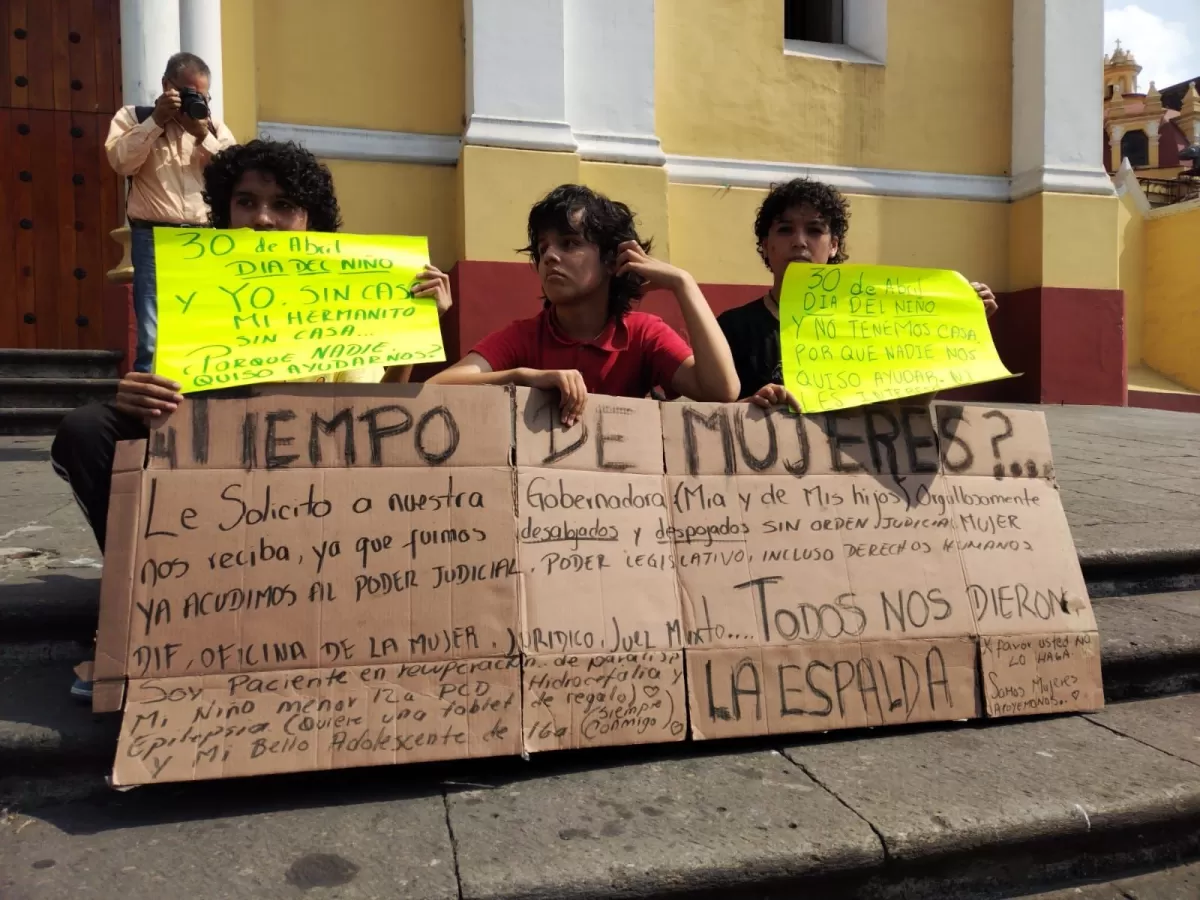 30 de Abril
DIA DEL NIÑO
Y YO, SIN CASA
MI HERMANITO
SIN CASA...
¿PORQUE NADIE
QUISO AYUDARNOS?
30 de Abril
DIA DEL NIÑO
Y NO TENEMOS CASA
POR QUE NADIE NOS
QUISO AYUDAR. NI
LES
"TIEMPO DE MUJERES?...
Le Solicito a nuestra Gobernadora (Mia y de Mis hijos) Orgullosamente MUJER
nos reciba, ya que fuimos desalojados y despojados SIN ORDEN JUDICIAL
YA ACUDIMOS AL PODER JUDICIAL, PODER LEGISLATIVO, INCLUSO DERECHOS HUMANOS
DIF, OFICINA DE LA MUJER, JURIDICO, Juez Mixto.... TODOS NOS DIERON
LA ESPALDA
Soy Paciente en recuperación de paralisis
Mi Niño menor 12a PCD Hidrocefalia y
Epilepsia (Quiere una tablet de regalo) ♡
y Mi Bello Adolescente de 16a (Siempre Conmigo) ♡
X favor usted NO
LO HAGA
Somos Mujeres
APOYEMONOS..♡